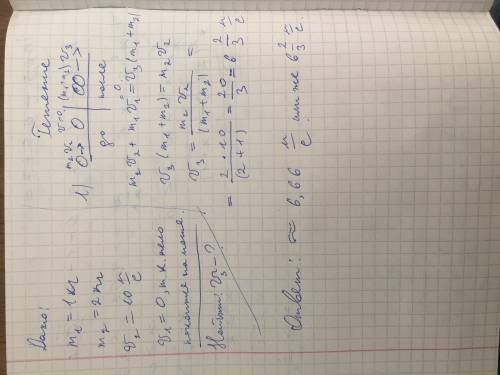 Дано:
m₁ = 1 кг
m₂ = 2 кг
v₂ = 10 м/с
v₁ = 0, т.к. тело
находится на месте.
Найти: v₃ - ?
Решение
1)
m₂ v₂ v₁=0 | (m₁+m₂) v₃
0→ 0 | 00 →
до | после
m₂v₂ + m₁v₁⁰ = v₃(m₁+m₂)
v₃ (m₁+m₂) = m₂v₂
v₃ = m₂v₂ / (m₁+m₂) =
= 2 · 10 / (2+1) = 20/3 = 6 2/3 м/с
Ответ: ≈ 6,66 м/с или же 6 2/3 м/с.